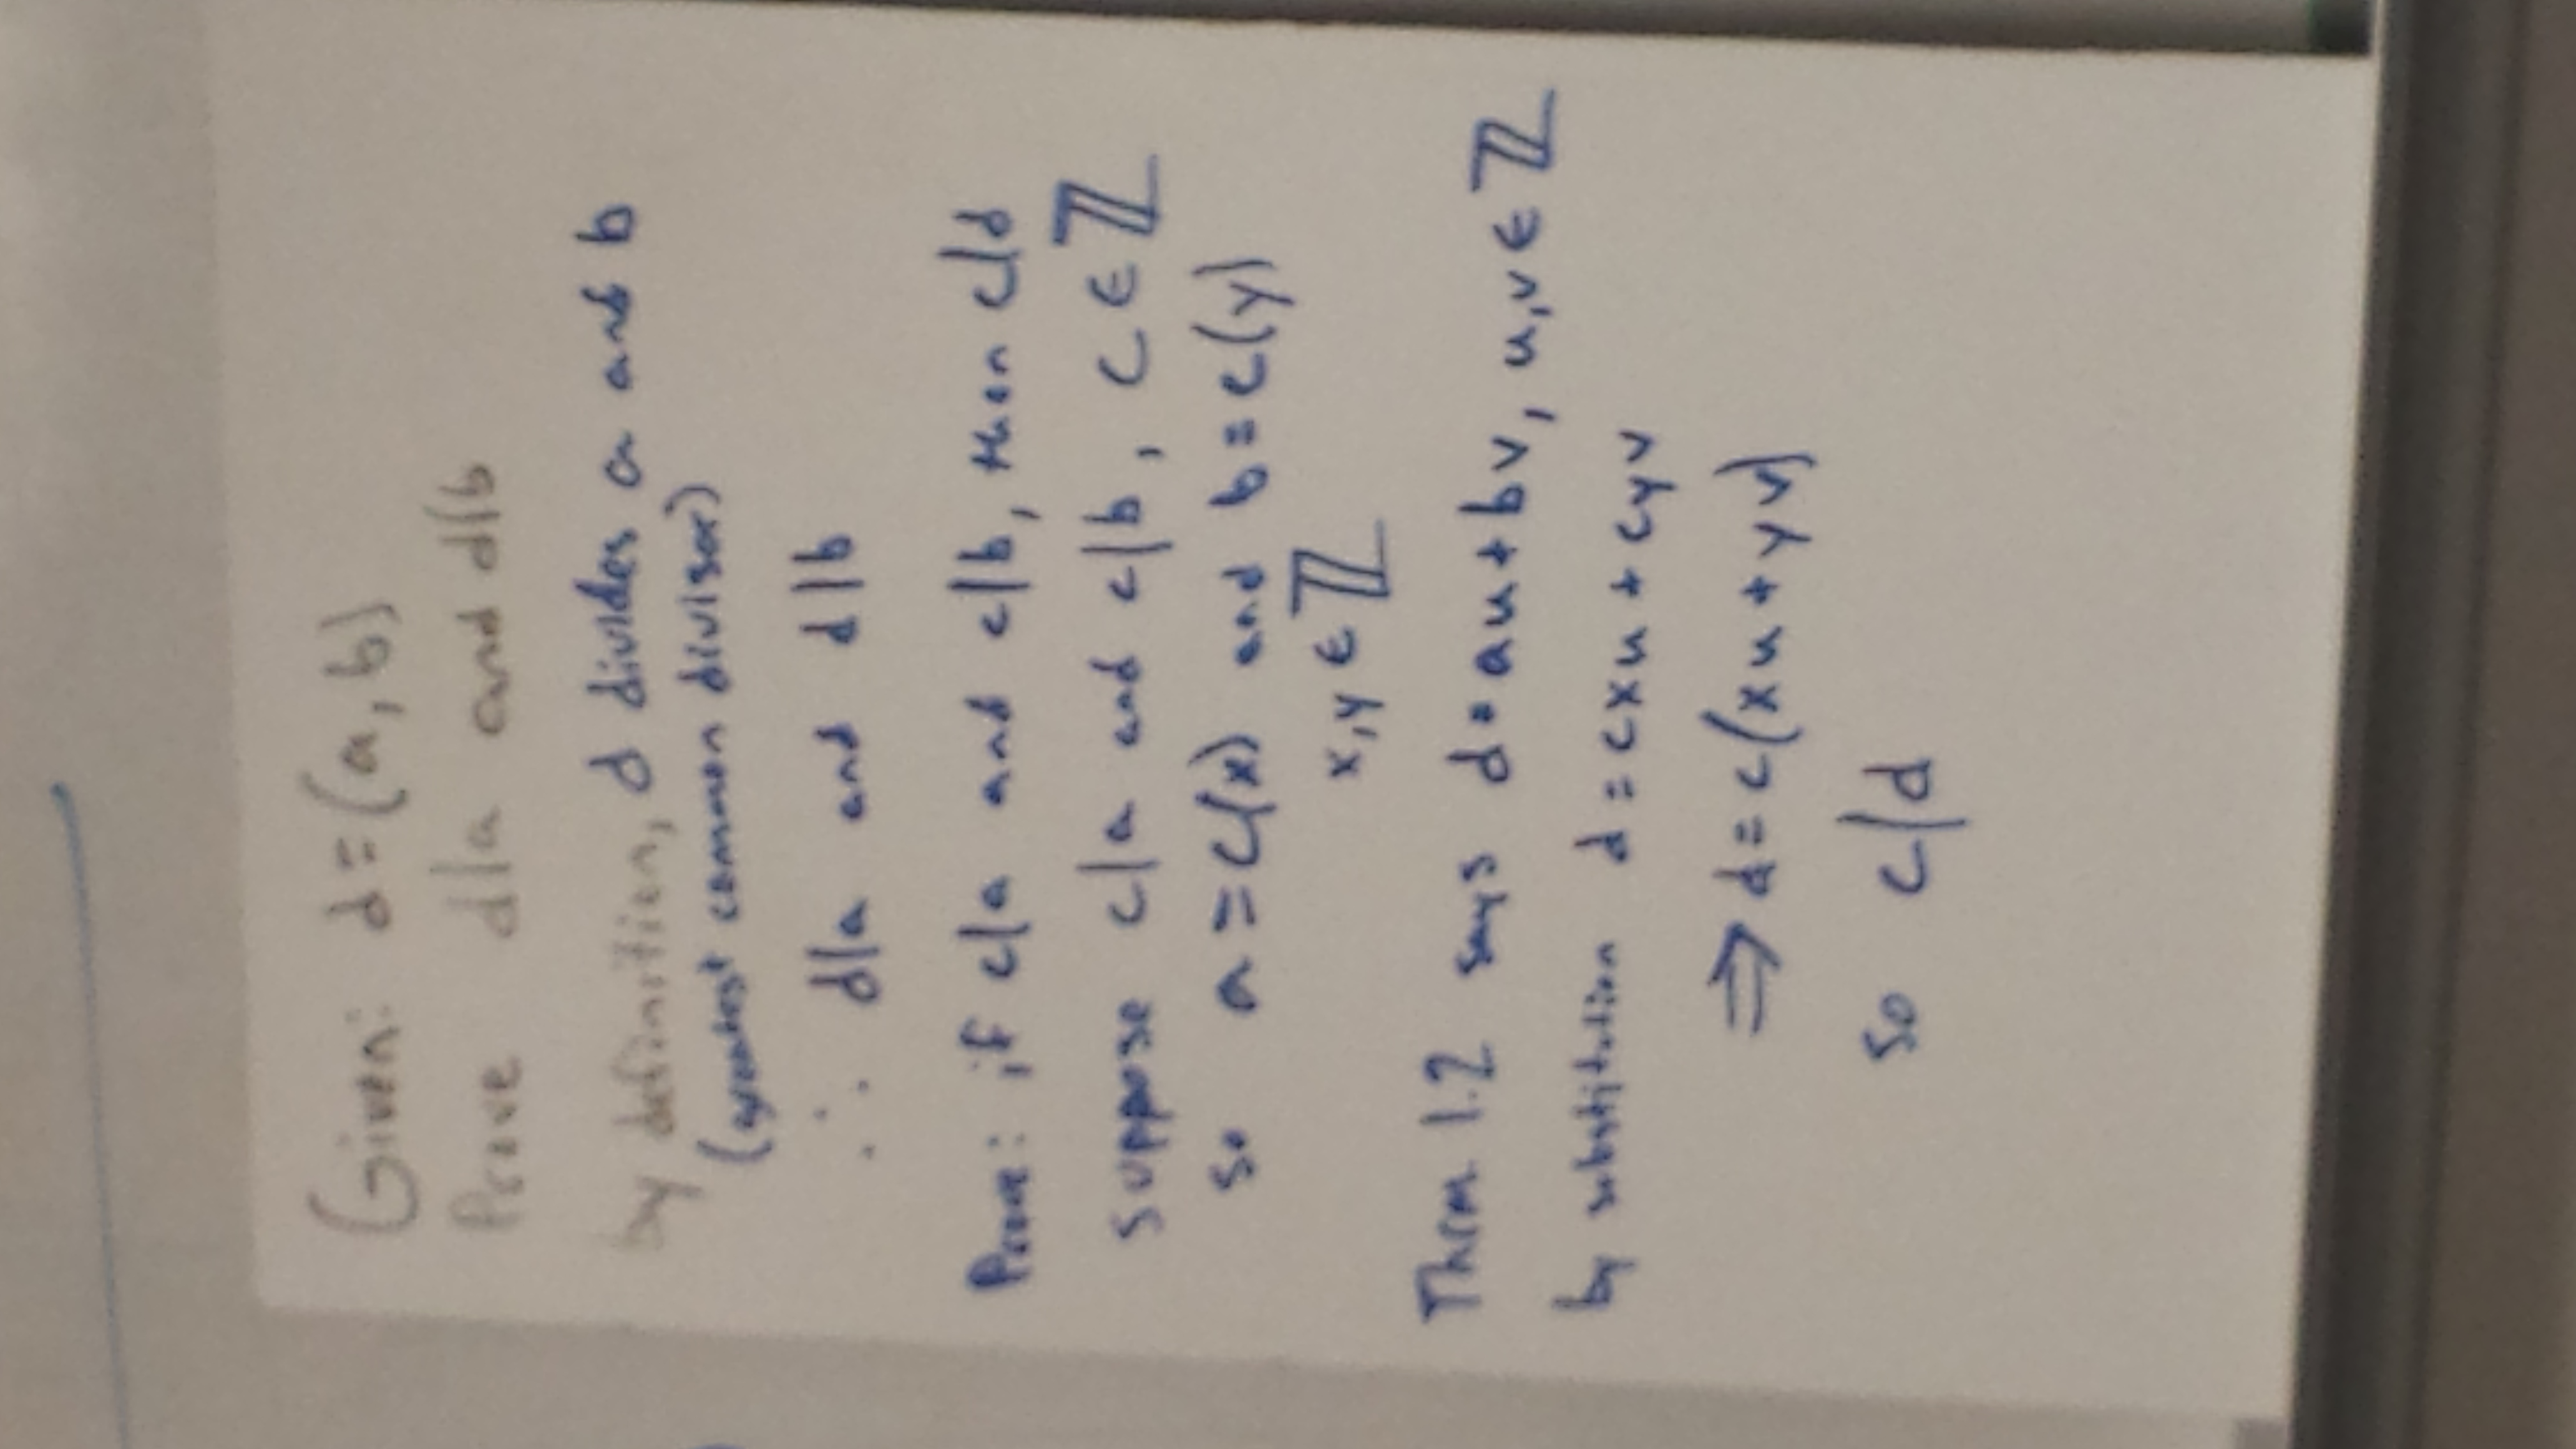 Given: d=(a,b)
Prove d|a and d|b
by definition, d divides a and b
(greatest common divisor)
∴ d|a and d|b
Prove: if c|a and c|b, then c|d
suppose c|a and c|b, c∈ℤ
so a=c(x) and b=c(y)
x,y∈ℤ
Thrm 1.2 says d=au+bv, u,v∈ℤ
by substitution d=cxu+cyv
⇒d=c(xu+yv)
so c|d